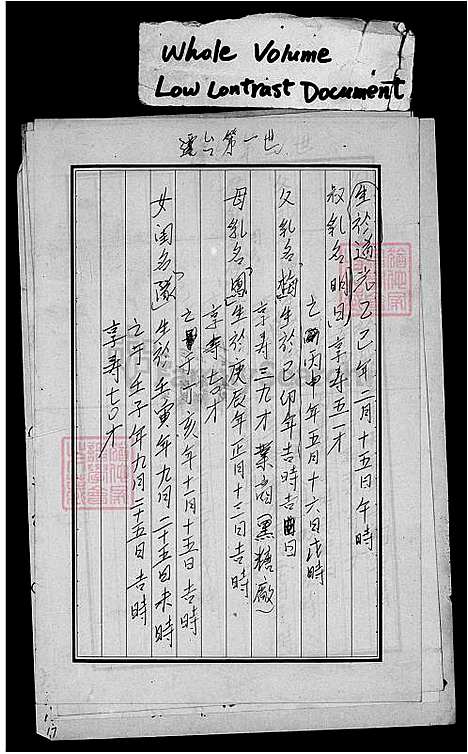 Whole Volume
Low Contrast Document
遷台第一世
生於道光乙巳年二月十五日午時
叔乳名明日享寿五一才
亡丙申年五月十六日戌時
父乳名 生於己卯年吉時吉日
享寿三九才 業商(黑糖廠)
母乳名 生於庚辰年正月十三日吉時
享寿七〇才
亡于辛亥年十一月十五日吉時
女閨名 生於壬寅年九月二十五日未時
亡于壬子年九月二十五日吉時
享寿七〇才
17